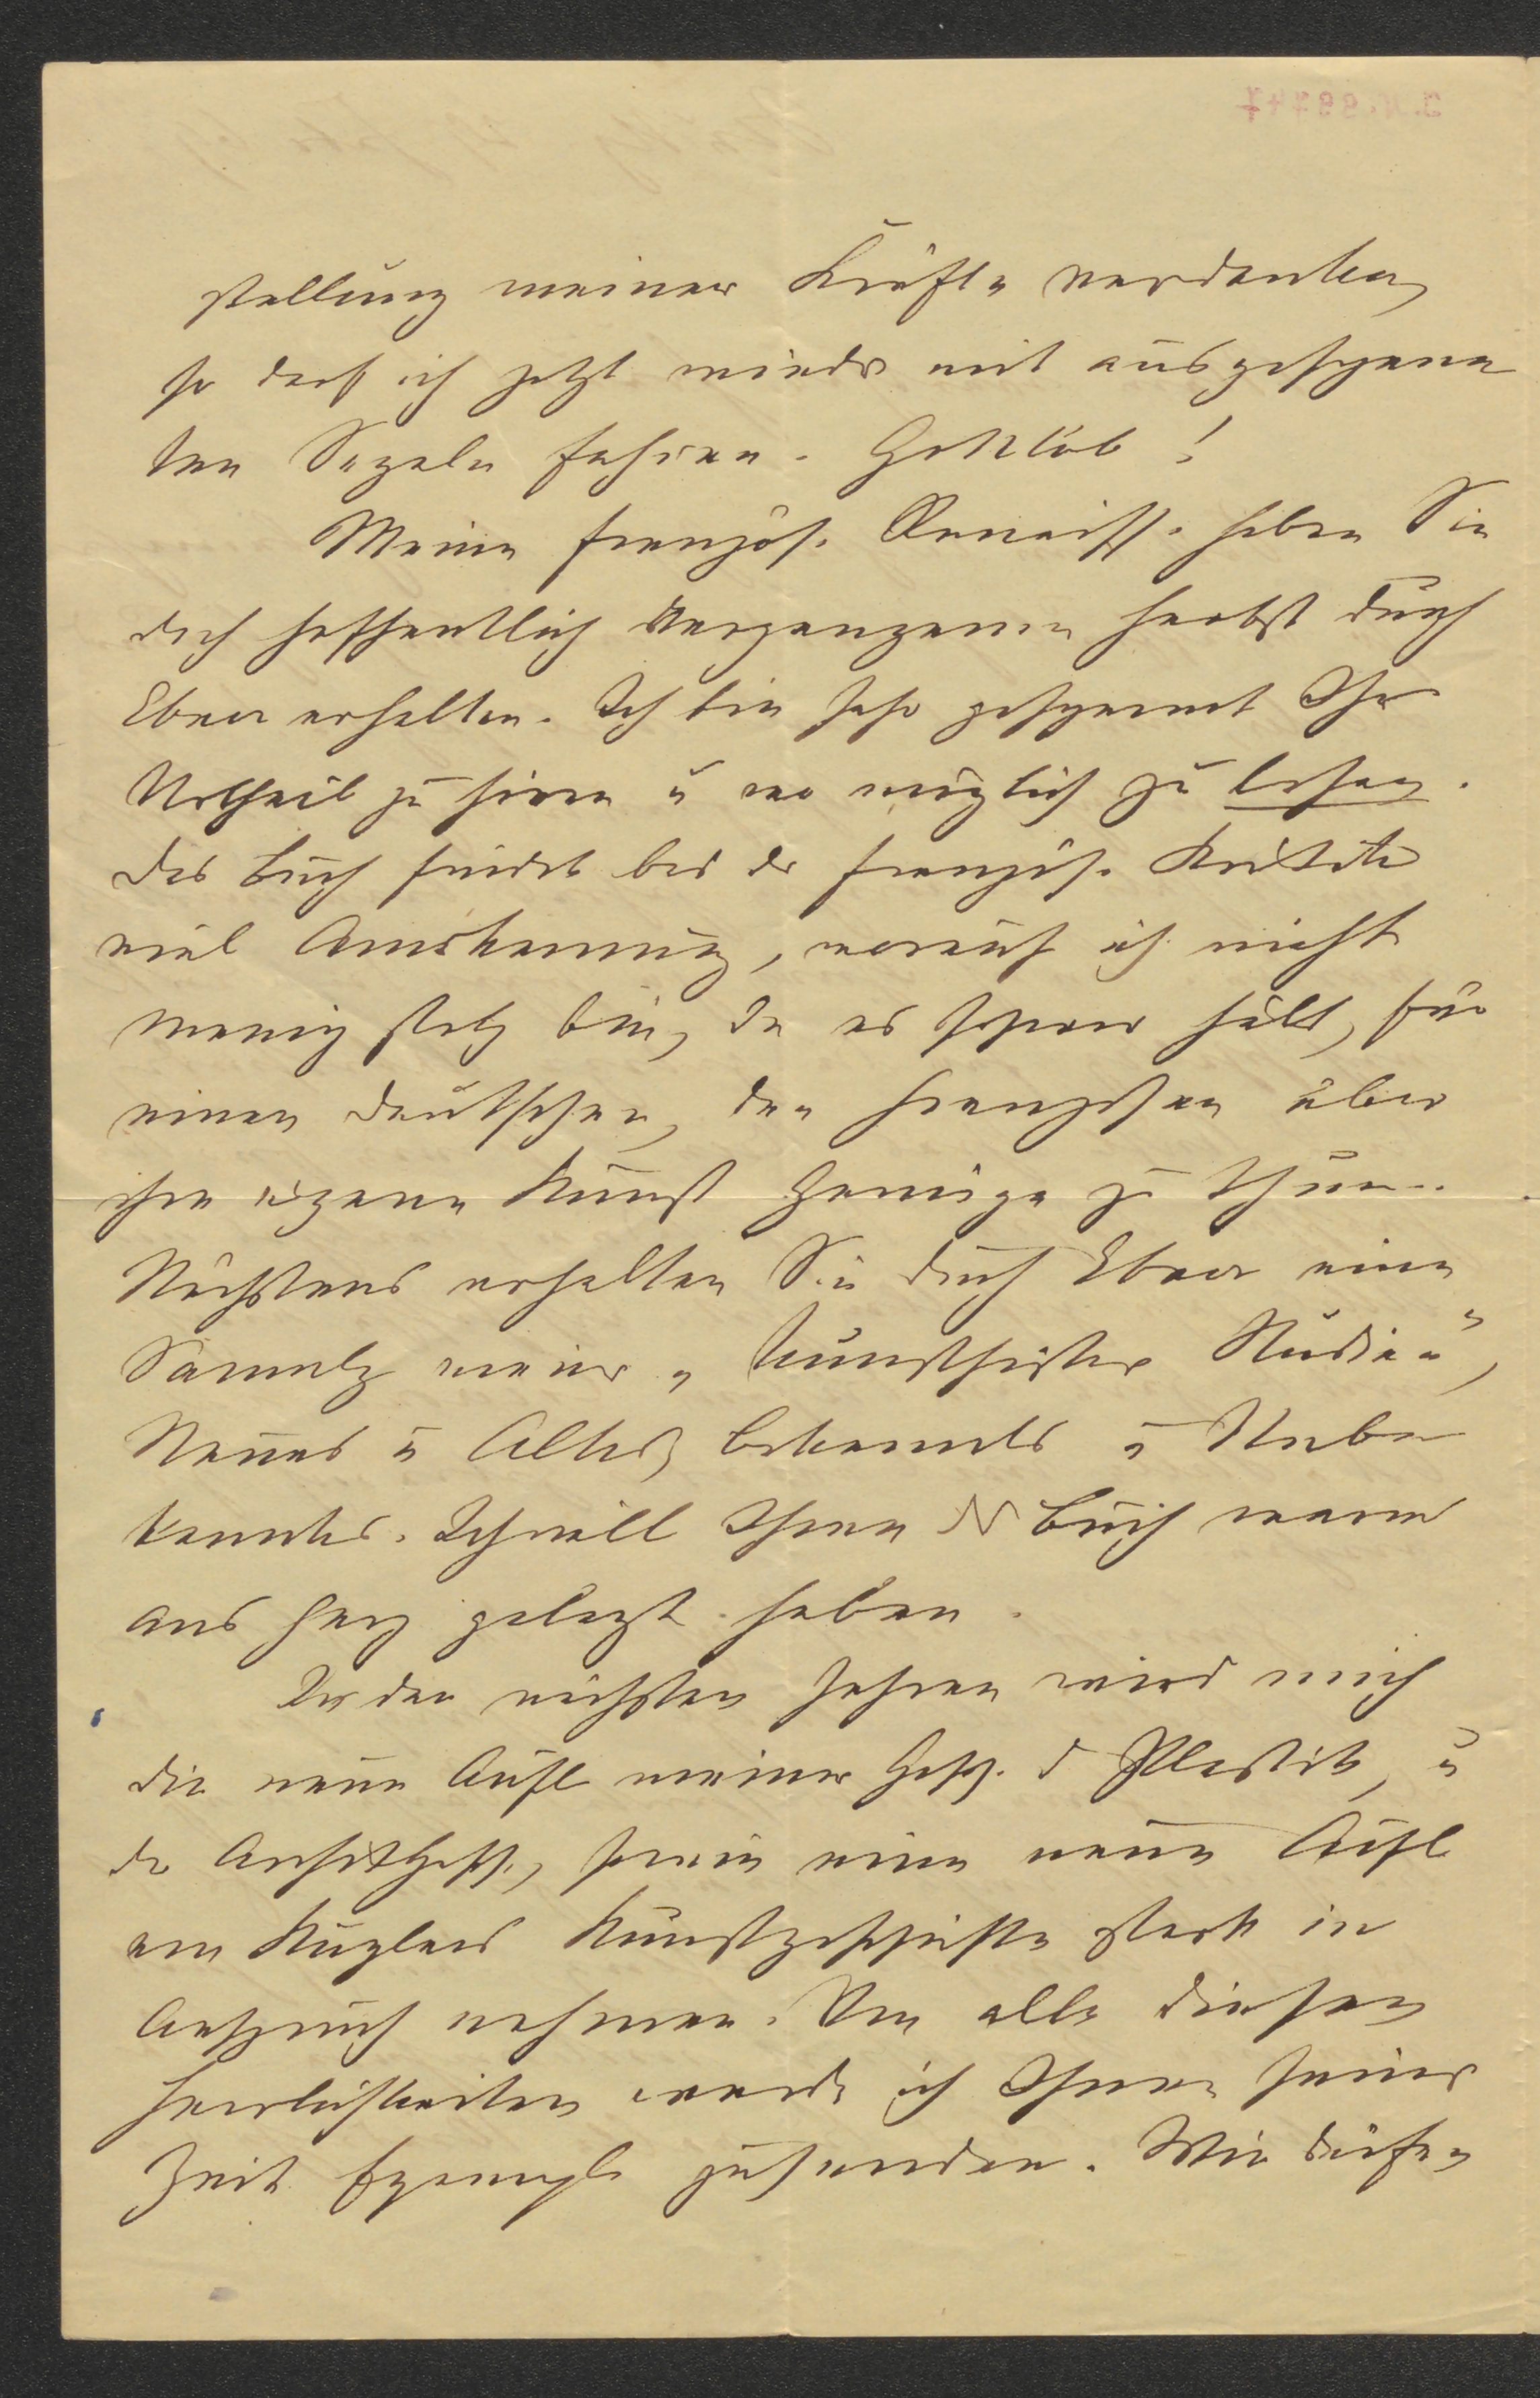 stellung meiner Kräfte verdanken,
so darf ich jetzt wieder mit ausgespann
ten Segeln fahren. Gottlob!
Meine französ. Renaiss. haben Sie
doch hoffentlich vergangenen Herbst durch
Ebner erhalten. Ich bin sehr gespannt Ihr
Urtheil zu hören u wo möglich zu lesen.
Das Buch findet bei der französ. Kritik
viel Anerkennung, worauf ich nicht
wenig stolz bin, da es schwer hält, für
einen Deutschen, den Franzosen über
ihre eigene Kunst Genüge zu thun.
Nächstens erhalten Sie durch Ebner eine
Sammlg meiner „Kunsthistor Studien“,
Neues u Altes, Bekanntes u Unbe
kanntes. Ich will Ihnen das Buch warm
ans Herz gelegt haben.
In den nächsten Jahren wird mich
die neue Aufl meiner Gesch. d Plastik, u
der ArchitGesch., sowie eine neue Aufl
von Kuglers Kunstgeschichte stark in
Anspruch nehmen. Von alle diesen
Herrlichkeiten werde ich Ihnen seiner
Zeit Exempl. zusenden. Wir dürfen